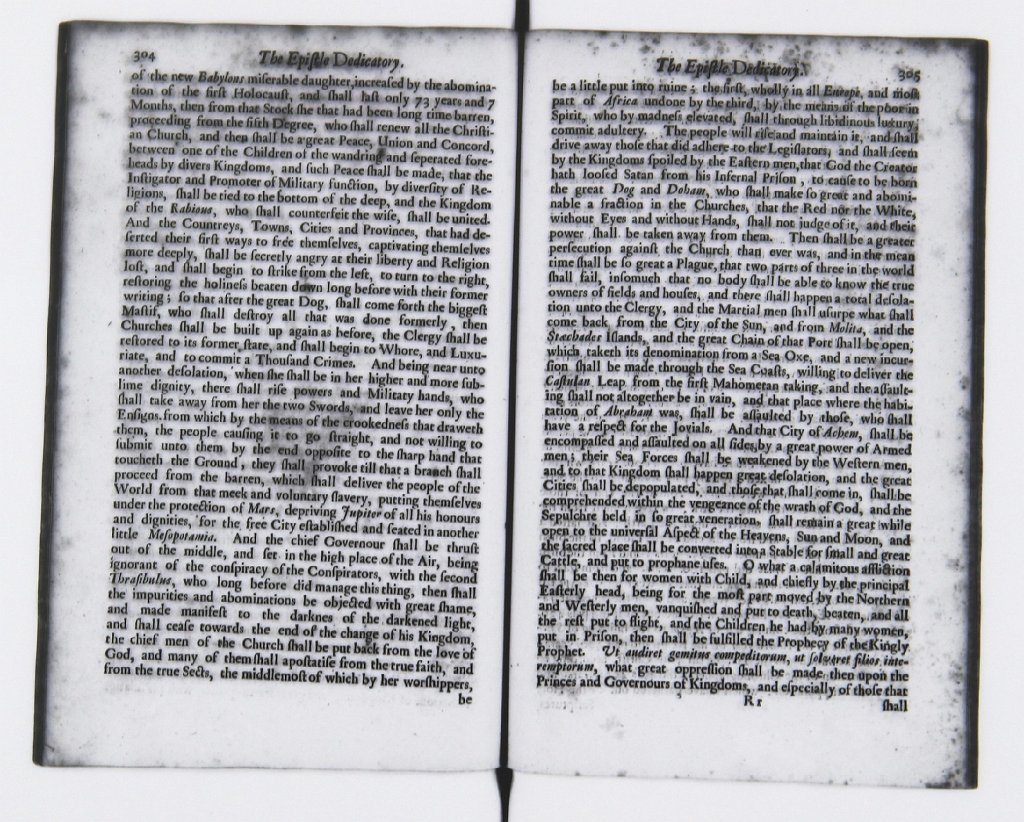 304
The Epiſtle Dedicatory.
of the new Babylons miſerable daughter, increaſed by the abomina-
tion of the firſt Holocauſt, and ſhall laſt only 73 years and 7
Months, then from that Stock ſhe that had been long time barren,
proceeding from the fifth Degree, who ſhall renew all the Chriſti-
an Church, and then ſhall be a great Peace, Union and Concord,
between one of the Children of the wandring and ſeperated fore-
heads by divers Kingdoms, and ſuch Peace ſhall be made, that the
Inſtigator and Promoter of Military function, by diverſity of Re-
ligions, ſhall be tied to the bottom of the deep, and the Kingdom
of the Rabious, who ſhall counterfeit the wiſe, ſhall be united.
And the Countreys, Towns, Cities and Provinces, that had de-
ſerted their firſt ways to free themſelves, captivating themſelves
more deeply, ſhall be ſecretly angry at their liberty and Religion
loſt, and ſhall begin to ſtrike from the left, to turn to the right,
reſtoring the holineſs beaten down long before with their former
writing; ſo that after the great Dog, ſhall come forth the biggeſt
Maſtif, who ſhall deſtroy all that was done formerly, then
Churches ſhall be built up again as before, the Clergy ſhall be
reſtored to its former ſtate, and ſhall begin to Whore, and Luxu-
riate, and to commit a Thouſand Crimes. And being near unto
another deſolation, when ſhe ſhall be in her higher and more ſub-
lime dignity, there ſhall riſe powers and Military hands, who
ſhall take away from her the two Swords, and leave her only the
Enſigns. from which by the means of the crookedneſs that draweth
them, the people cauſing it to go ſtraight, and not willing to
ſubmit unto them by the end oppoſite to the ſharp hand that
toucheth the Ground, they ſhall provoke till that a branch ſhall
proceed from the barren, which ſhall deliver the people of the
World from that meek and voluntary ſlavery, putting themſelves
under the protection of Mars, depriving Jupiter of all his honours
and dignities, for the free City eſtabliſhed and ſeated in another
little Meſopotamia. And the chief Governour ſhall be thruſt
out of the middle, and ſet in the high place of the Air, being
ignorant of the conſpiracy of the Conſpirators, with the ſecond
Thraſibulus, who long before did manage this thing, then ſhall
the impurities and abominations be objected with great ſhame,
and made manifeſt to the darknes of the darkened light,
and ſhall ceaſe towards the end of the change of his Kingdom,
the chief men of the Church ſhall be put back from the love of
God, and many of them ſhall apoſtatiſe from the true faith, and
from the true Sects, the middlemoſt of which by her worſhippers,
be
The Epiſtle Dedicatory.
305
be a little put into ruine; the firſt, wholly in all Europe, and moſt
part of Africa undone by the third, by the means of the poor in
Spirit, who by madneſs elevated, ſhall through libidinous luxury,
commit adultery. The people will riſe and maintain it, and ſhall
drive away thoſe that did adhere to the Legiſlators, and ſhall ſeem
by the Kingdoms ſpoiled by the Eaſtern men, that God the Creator
hath looſed Satan from his Infernal Priſon, to cauſe to be born
the great Dog and Doham, who ſhall make ſo great and abomi-
nable a fraction in the Churches, that the Red nor the White,
without Eyes and without Hands, ſhall not judge of it, and their
power ſhall be taken away from them. Then ſhall be a greater
perſecution againſt the Church than ever was, and in the mean
time ſhall be ſo great a Plague, that two parts of three in the world
ſhall fail, inſomuch that no body ſhall be able to know the true
owners of fields and houſes, and there ſhall happen a total deſola-
tion unto the Clergy, and the Martial men ſhall uſurpe what ſhall
come back from the City of the Sun, and from Molita, and the
Stæchades Iſlands, and the great Chain of that Port ſhall be open,
which taketh its denomination from a Sea Oxe, and a new incur-
ſion ſhall be made through the Sea Coaſts, willing to deliver the
Caſtulan Leap from the firſt Mahometan taking, and the aſſault-
ing ſhall not altogether be in vain, and that place where the habi-
tation of Abraham was, ſhall be aſſaulted by thoſe, who ſhall
have a reſpect for the Jovials. And that City of Achem, ſhall be
encompaſſed and aſſaulted on all ſides by a great power of Armed
men; their Sea Forces ſhall be weakened by the Weſtern men,
and to that Kingdom ſhall happen great deſolation, and the great
Cities ſhall be depopulated, and thoſe that ſhall come in, ſhall be
comprehended within the vengeance of the wrath of God, and the
Sepulchre held in ſo great veneration ſhall remain a great while
open to the univerſal Aſpect of the Heavens, Sun and Moon, and
the ſacred place ſhall be converted into a Stable for ſmall and great
Cattle, and put to prophane uſes. O what a calamitous affliction
ſhall be then for women with Child, and chiefly by the principal
Eaſterly head, being for the moſt part moved by the Northern
and Weſterly men, vanquiſhed and put to death, beaten, and all
the reſt put to flight, and the Children he had by many women,
put in Priſon, then ſhall be fulfilled the Prophecy of the Kingly
Prophet. Ut audiret gemitus compeditorum, ut ſolveret filios inte-
remptorum, what great oppreſſion ſhall be made then upon the
Princes and Governours of Kingdoms, and eſpecially of thoſe that
R r
ſhall